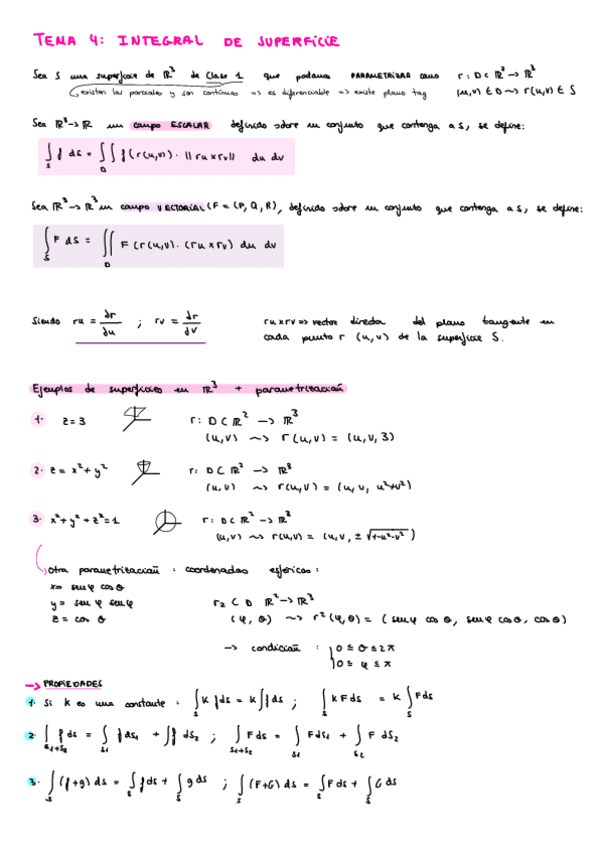 TEMA 4: INTEGRAL DE SUPERFICIE
Sea S una superficie de ℝ³ de Clase 1 que podamos PARAMETRIZAR como r: D⊂ℝ² → ℝ³
existen las parciales y son continuas => es diferenciable => existe plano tag (u,v) ∈ D ⤳ r(u,v) ∈ S
Sea ℝ³→ℝ un campo ESCALAR definido sobre un conjunto que contenga a S, se define:
∫_S f ds = ∬_D f(r(u,v)) · ||ru x rv|| du dv
Sea ℝ³→ℝ³ un campo VECTORIAL (F = (P, Q, R), definido sobre un conjunto que contenga a S, se define:
∫_S F ds = ∬_D F(r(u,v) · (ru x rv) du dv
Siendo ru = ∂r/∂u ; rv = ∂r/∂v ru x rv => vector director del plano tangente en
cada punto r (u,v) de la superficie S.
Ejemplos de superficies en ℝ³ + parametrización
1. z = 3 r: D⊂ℝ² → ℝ³
(u,v) ⤳ r(u,v) = (u,v,3)
2. z = x² + y² r: D⊂ℝ² → ℝ³
(u,v) ⤳ r(u,v) = (u,v, u²+v²)
3. x² + y² + z² = 1 r: D⊂ℝ² → ℝ³
(u,v) ⤳ r(u,v) = (u,v, ± √1-u²-v² )
otra parametrización : coordenadas esféricas:
x = senφ cosθ
y = senφ senφ r2 ⊂ D ℝ² → ℝ³
z = cosθ (φ, θ) ⤳ r²(φ,θ) = ( senφ cosθ, senφ cosθ, cosθ)
→ condición : 0 ≤ θ ≤ 2π
0 ≤ φ ≤ π
→ PROPIEDADES
1. Si K es una constante : ∫_S K f ds = K ∫_S f ds ; ∫_S K F ds = K ∫_S F ds
2. ∫_S1+S2 f ds = ∫_S1 f ds1 + ∫ f ds2 ; ∫_S1+S2 F ds = ∫_S1 F ds1 + ∫_S2 F ds2
3. ∫_S (f+g) ds = ∫_S f ds + ∫_S g ds ; ∫_S (F+G) ds = ∫_S F ds + ∫_S G ds